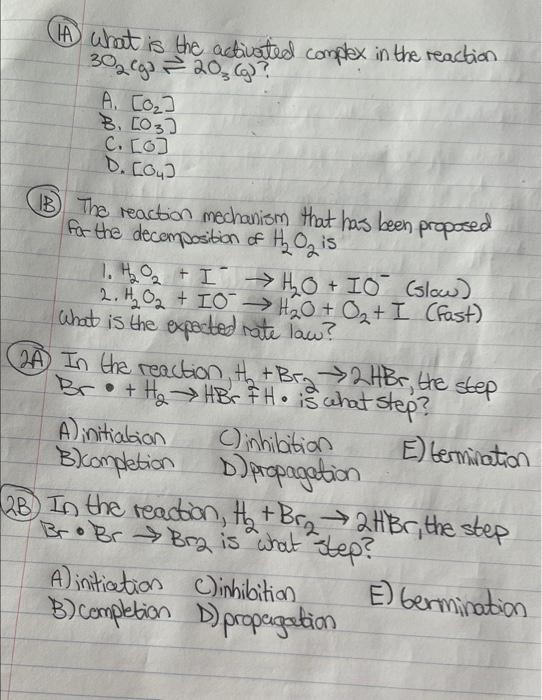 1A What is the activated complex in the reaction
3O₂(g) ⇌ 2O₃(g)?
A. [O₂]
B. [O₃]
C. [O]
D. [O₄]
1B The reaction mechanism that has been proposed
for the decomposition of H₂O₂ is
1. H₂O₂ + I⁻ → H₂O + IO⁻ (slow)
2. H₂O₂ + IO⁻ → H₂O + O₂ + I (fast)
What is the expected rate law?
2A In the reaction, H₂ + Br₂ → 2HBr, the step
Br • + H₂ → HBr + H • is what step?
A) initiation C) inhibition E) termination
B) completion D) propagation
2B In the reaction, H₂ + Br₂ → 2HBr, the step
Br • Br → Br₂ is what step?
A) initiation C) inhibition E) termination
B) completion D) propagation